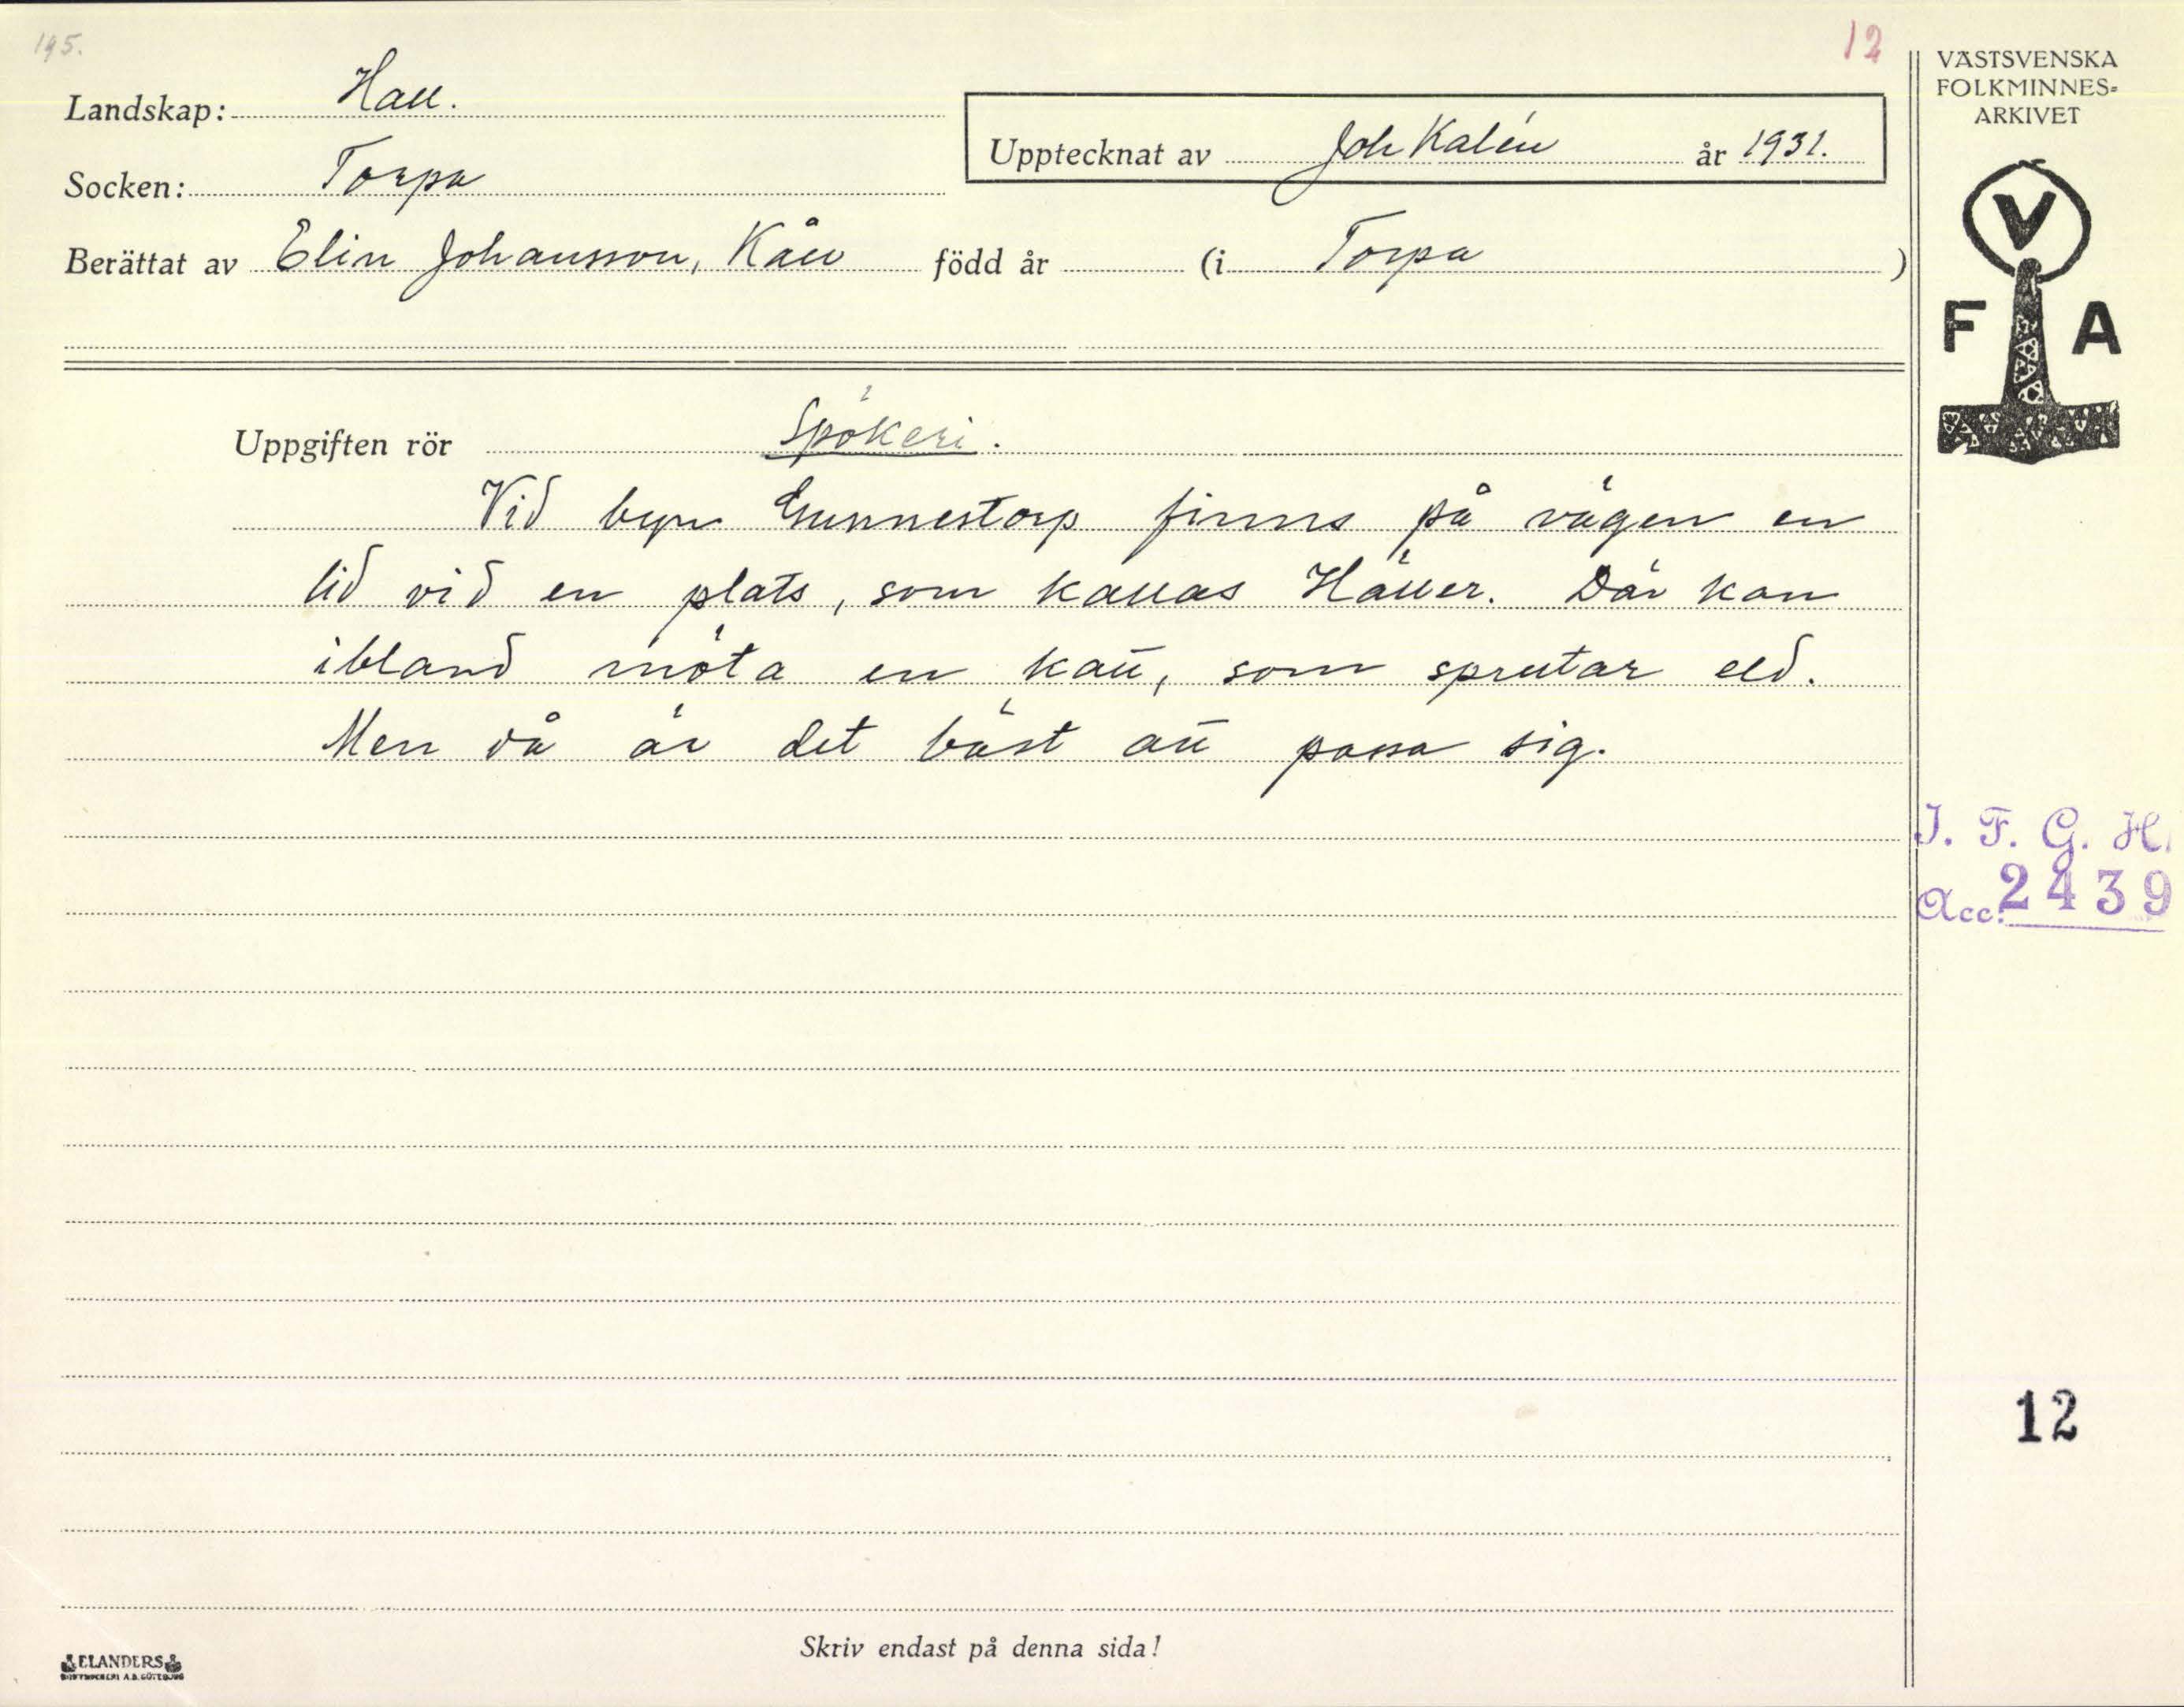 195.
12
VÄSTSVENSKA
FOLKMINNES=
ARKIVET
Landskap: Hall.
Upptecknat av Joh Kalén år 1931.
Socken: Torpa
Berättat av Elin Johansson, född år (i Torpa )
V
F A
Uppgiften rör Spökeri.
Vid byn Gunnestorp finns på vägen en
lid vid en plats, som kallas Häller. Där kan
ibland möta en katt, som sprutar eld.
Men då är det bäst att passa sig.
I. F. G. H.
Acc. 2439
12
Skriv endast på denna sida!
ELANDERS
BOKTRYCKERI A.B. GÖTEBORG